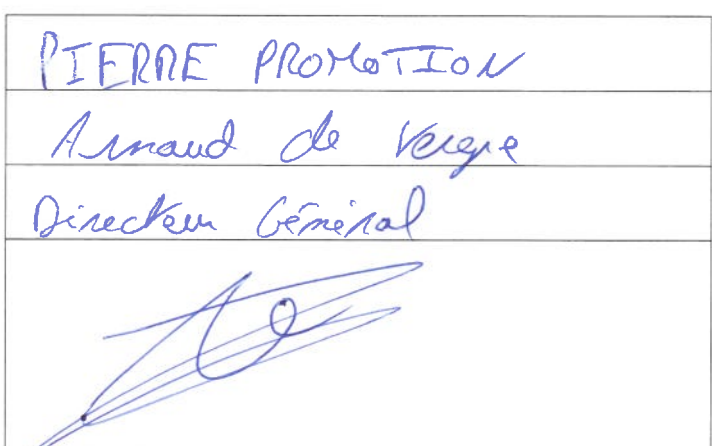 PIERRE PROMOTION
Arnaud de Vergie
Directeur Général